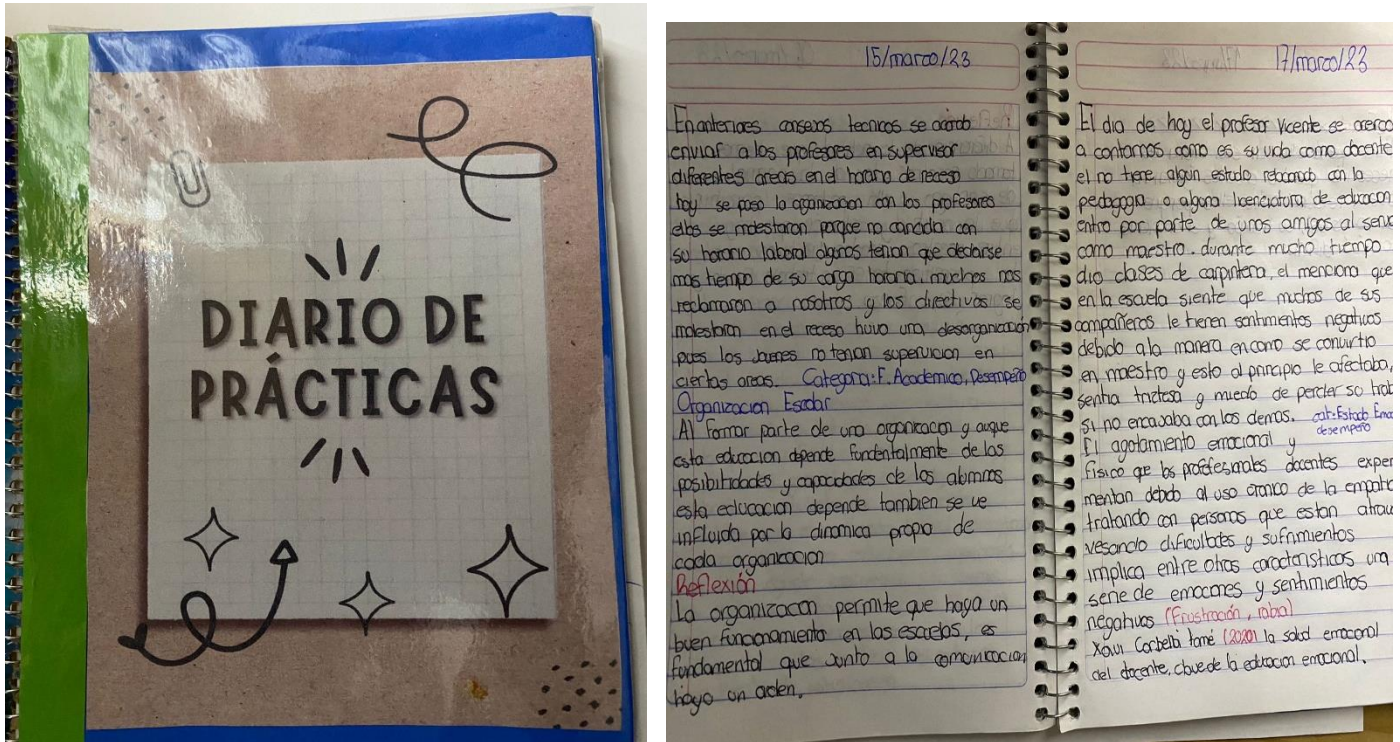 DIARIO DE
PRÁCTICAS
15/marzo/23
En anteriores consejos tecnicos se acordo
enviar a los profesores en supervisar
diferentes areas en el horario de receso
hoy se paso la organizacion con los profesores
ellos se molestaron porque no concidia con
su horario laboral algunos tenian que declarse
mas tiempo de su carga horaria. muchos nos
reclamaron a nosotros y los directivos se
molestaron en el receso huvo una desorganizacion
pues los jovenes no tenian supervicion en
ciertas areas. Categoria: F. Academico, Desempeño
Organizacion Escolar
Al formar parte de una organizacion y auque
esta educacion depende fundentalmente de las
posibilidades y capacidades de los alumnos
esta educacion depende tambien se ve
influida por la dinamica propia de
cada organizacion
Reflexión
La organizacion permite que haya un
buen funcionamiento en las escuelas, es
fundamental que junto a la comunicacion
haya un orden.
17/marzo/23
El dia de hoy el profesor Vicente se acerco
a contarnos como es su vida como docente
el no tiene algun estudio relacionado con la
pedagogia o alguna licenciatura de educacion
entro por parte de unos amigos al servi
como maestro. durante mucho tiempo
dio clases de carpinteria, el menciona que
en la escuela siente que muchos de sus
compañeros le tienen sentimentos negativos
debido a la manera en como se convirtio
en maestro y esto al principio le afectaba,
sentia triztesa y miedo de perder su trab
si no encajaba con los demas. cat: Estado Emo
desempeño
El agotamiento emocional y
fisico que los profefesionales docentes experi
mentan debido al uso cronico de la empatia
tratando con personas que estan atrav
vesando dificultates y sufrimientos
implica entre otras caracteristicas una
serie de emociones y sentimientos
negativos (Frustración, rabia)
Xavi Corbella tomé (2020) la salud emocional
del docente, clave de la educacion emocional.